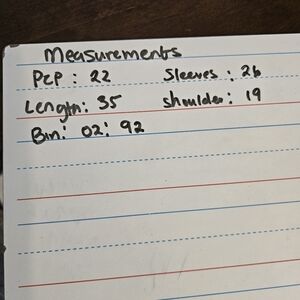 Measurements
PTP : 22 Sleeves : 26
Length : 35 Shoulder : 19
Bin : 02 : 92